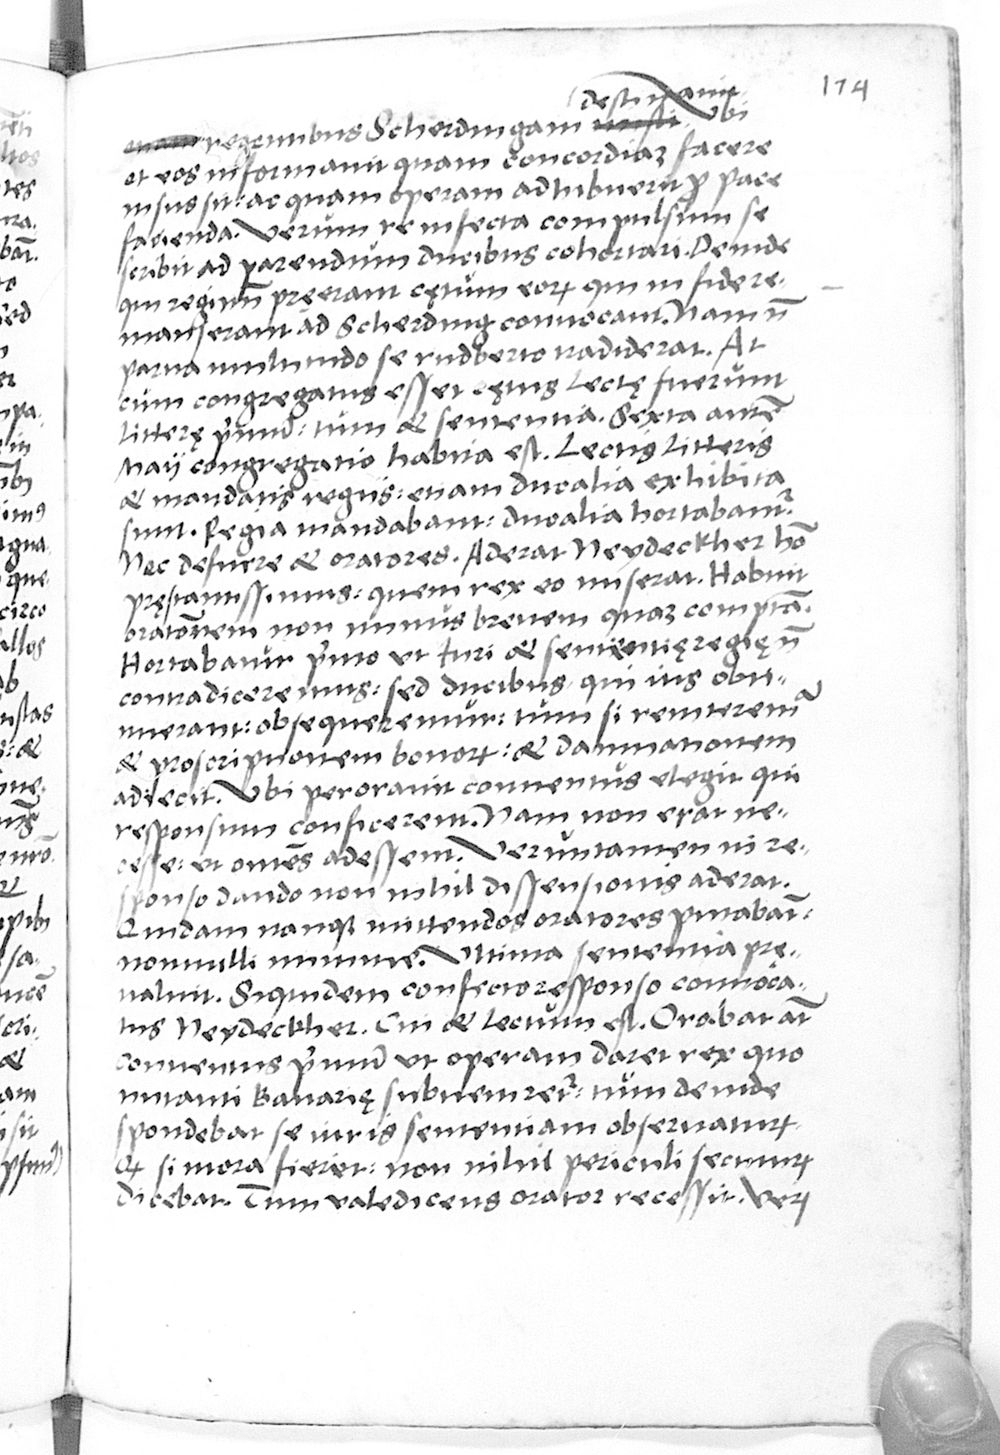 174
destinauit
etiam regentibus Scherdingam misit. Vbi
et eos informauit quam concordiaꝫ facere
iussus sit: ac quam operam adhibuerit ꝓ pace
facienda. Verum re infecta compulsum se
scribit ad parendum ducibus cohortari. Deinde
qui regimī pręerant cętum eoꝝ qui in fide re-
manserant ad Scherding conuocant. Nam nō
parua multitudo se rudberto tradiderat. At
cum congregatus esset cętus lectę fuerunt
litterę p̄mū: tum & sententia. Sexta autē
Maij congregatio habita est. Lectis litteris
& mandatis regiis: etiam ducalia exhibita
sunt. Regia mandabant: ducalia hortabant᷑.
Nec defuere & oratores. Aderat Neydeckher hō
pręstantissimus: quem rex eo miserat. Habuit
oratōnem non minus breuem quaꝫ comptā.
Hortabatur p̄mo vt iuri & sententię regię nō
contradiceremus: sed ducibus, qui ius obti-
nuerant: obsequeremur: tum si reniterem᷑
& proscriptionem bonoꝝ: & damnationem
adiecit. Vbi perorauit conuentus elegit qui
responsum conficerent. Nam non erat ne-
cesse: ut om̄es adessent. Veruntamen in re-
sponso dando non nihil dissensionis aderat.
Quidam nanqꝫ mittendos oratores putabāt:
nonnulli minime. Vltima sententia prę-
ualuit. Siquidem confecto responso conuoca-
tus Neydeckher. Cui & lectum est. Orabat at̄
conuentus p̄mū vt operam daret rex quo
nutanti Bauarię subueniret᷑: tum deinde
spondebat se iuris sententiam obseruatuꝝ.
Qꝫ si mora fieret: non nihil periculi secutuꝝ
dicebat. Tum valedicens orator recessit. Veꝝ